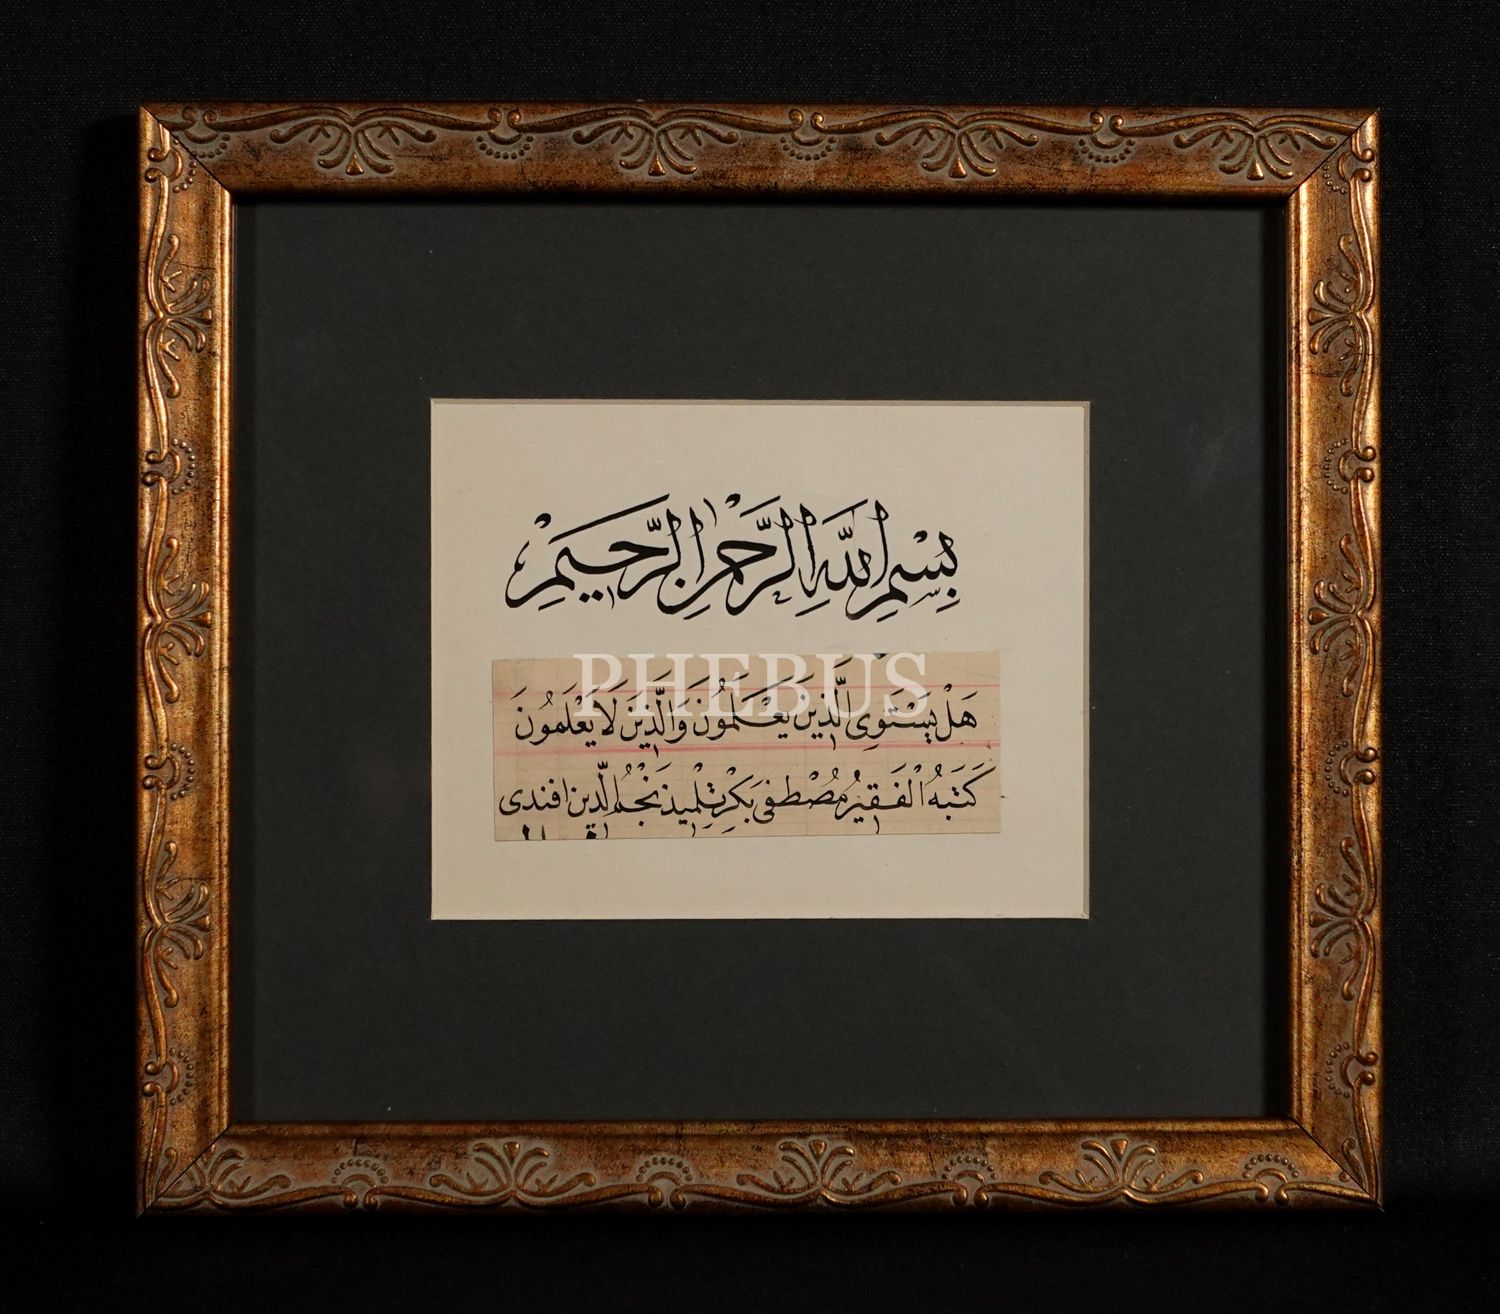 بِسْمِ اللّٰهِ الرَّحْمٰنِ الرَّحِيمِ
PHEBUS
هَلْ يَسْتَوِى الَّذِينَ يَعْلَمُونَ وَالَّذِينَ لَا يَعْلَمُونَ
كَتَبَهُ الْفَقِيرُ مُصْطَفٰى بَكِرْ تِلْمِيذ نَجْمُ الدِّين افندى